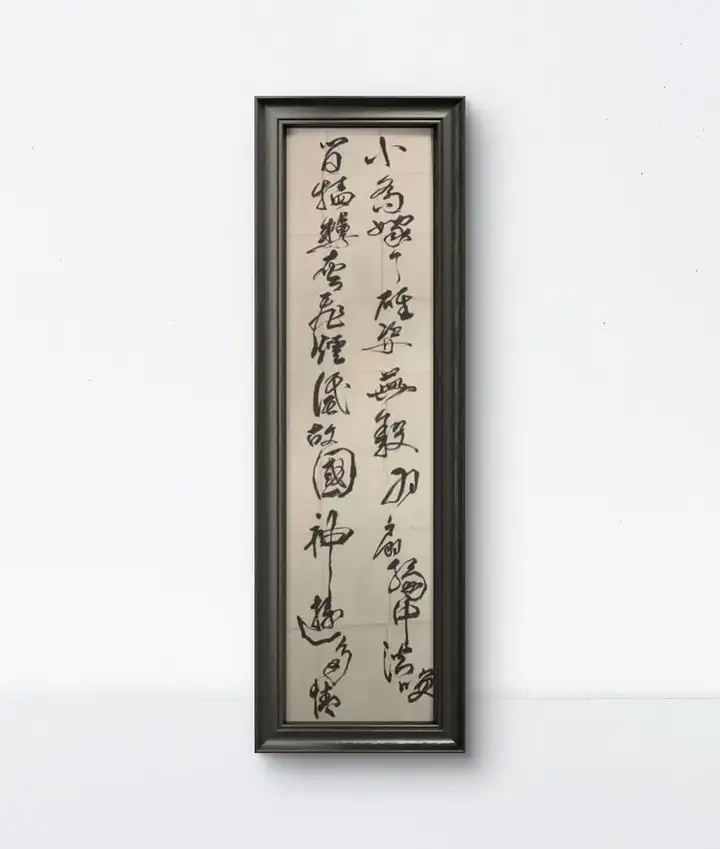 小喬嫁了雄姿英發羽扇綸巾談笑
間檣櫓灰飛煙滅故國神遊多情